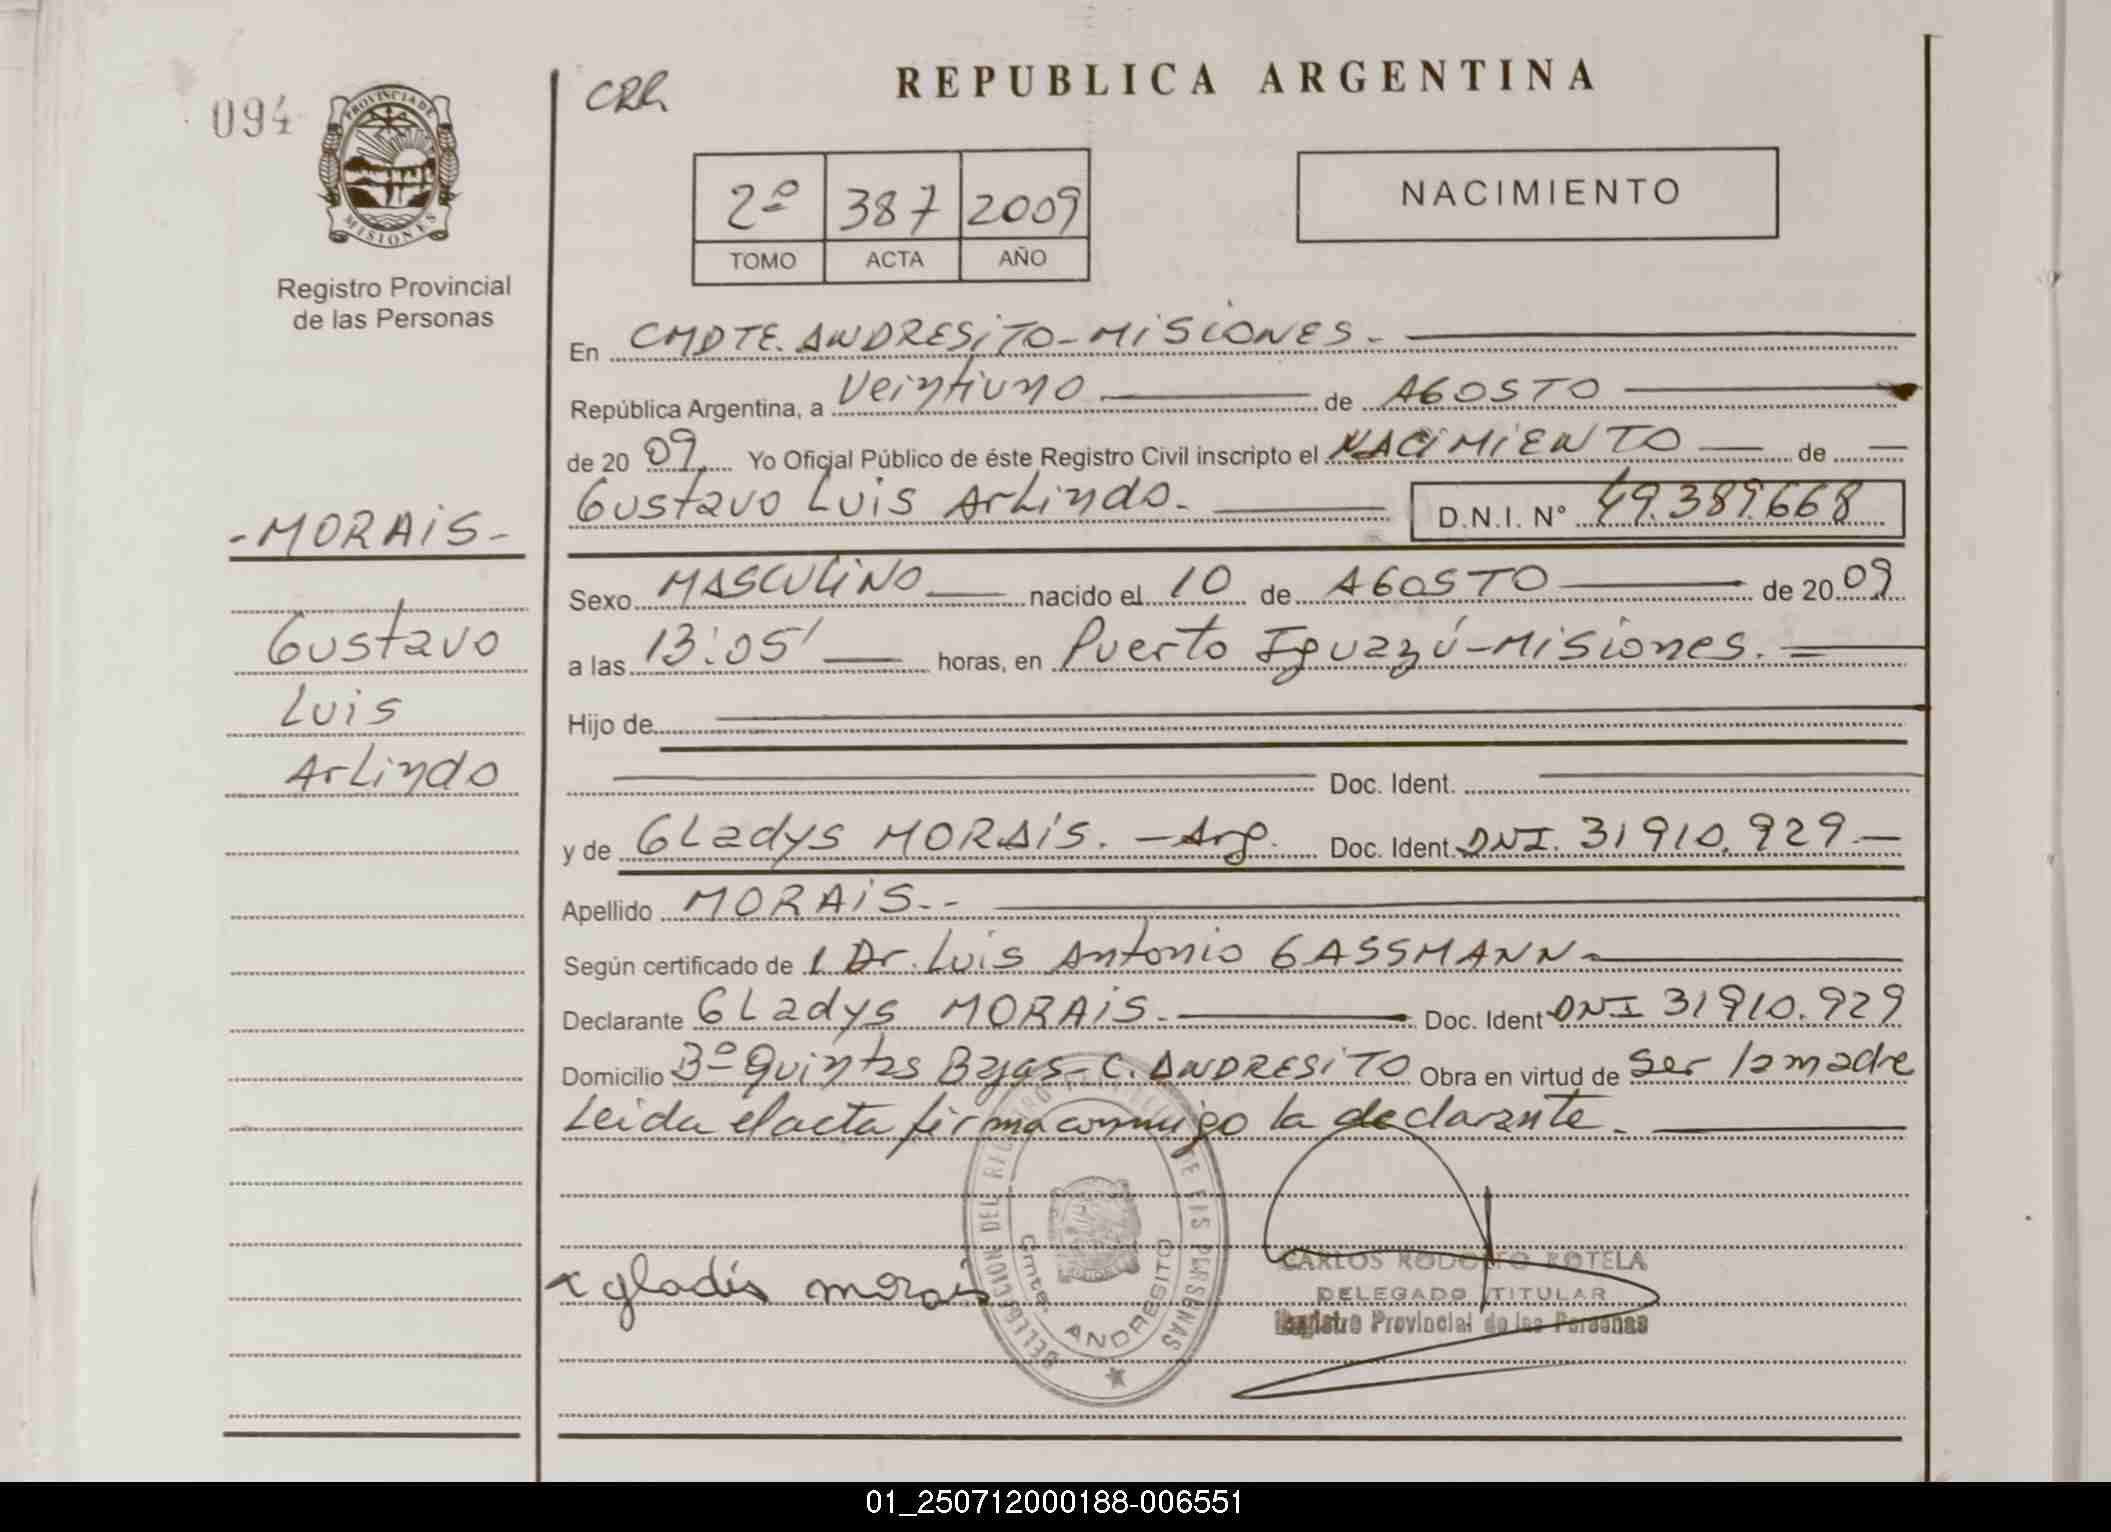 094
PROVINCIA DE
MISIONES
Registro Provincial
de las Personas
REPUBLICA ARGENTINA
2º 387 2009
TOMO ACTA AÑO
NACIMIENTO
En CMDTE. ANDRESITO-MISIONES.-
República Argentina, a Veintiuno de AGOSTO
de 20 09 Yo Oficial Público de éste Registro Civil inscripto el NACIMIENTO de
Gustavo Luis Arlindo.- D.N.I. N° 49.389.668
-MORAIS-
Gustavo
Luis
Arlindo
Sexo MASCULINO nacido el 10 de AGOSTO de 20 09
a las 13:05' horas, en Puerto Iguazú-Misiones.
Hijo de
Doc. Ident.
y de Gladys MORAIS. - Arg. Doc. Ident. DNI. 31910.929.-
Apellido MORAIS.--
Según certificado de 1 Dr. Luis Antonio GASSMANN-
Declarante Gladys MORAIS.- Doc. Ident DNI 31910.929
Domicilio Bº Quintas Bajas-C. ANDRESITO Obra en virtud de ser la madre
Leida el acta firma conmigo la declarante.
x gladis morais
DELEGACION DEL REGISTRO DE LAS PERSONAS
Cmte. ANDRESITO
CARLOS RODOLFO ROTELA
DELEGADO TITULAR
Registro Provincial de las Personas
01_250712000188-006551